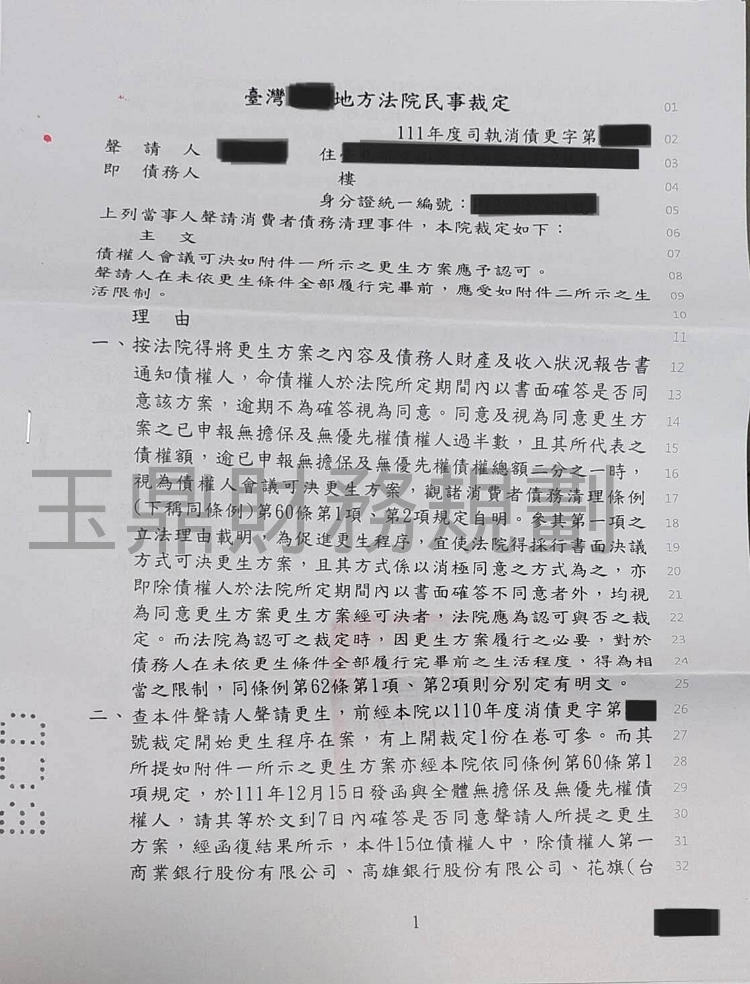 臺灣 地方法院民事裁定 01
111年度司執消債更字第 02
聲請人 住 03
即債務人 樓 04
身分證統一編號： 05
上列當事人聲請消費者債務清理事件，本院裁定如下： 06
主文 07
債權人會議可決如附件一所示之更生方案應予認可。 08
聲請人在未依更生條件全部履行完畢前，應受如附件二所示之生 09
活限制。 10
理由 11
一、按法院得將更生方案之內容及債務人財產及收入狀況報告書 12
通知債權人，命債權人於法院所定期間內以書面確答是否同 13
意該方案，逾期不為確答視為同意。同意及視為同意更生方 14
案之已申報無擔保及無優先權債權人過半數，且其所代表之 15
債權額，逾已申報無擔保及無優先權債權總額二分之一時， 16
視為債權人會議可決更生方案，觀諸消費者債務清理條例 17
(下稱同條例)第60條第1項、第2項規定自明。參其第一項之 18
立法理由載明，為促進更生程序，宜使法院得採行書面決議 19
方式可決更生方案，且其方式係以消極同意之方式為之，亦 20
即除債權人於法院所定期間內以書面確答不同意者外，均視 21
為同意更生方案更生方案經可決者，法院應為認可與否之裁 22
定。而法院為認可之裁定時，因更生方案履行之必要，對於 23
債務人在未依更生條件全部履行完畢前之生活程度，得為相 24
當之限制，同條例第62條第1項、第2項則分別定有明文。 25
二、查本件聲請人聲請更生，前經本院以110年度消債更字第 26
號裁定開始更生程序在案，有上開裁定1份在卷可參。而其 27
所提如附件一所示之更生方案亦經本院依同條例第60條第1 28
項規定，於111年12月15日發函與全體無擔保及無優先權債 29
權人，請其等於文到7日內確答是否同意聲請人所提之更生 30
方案，經函復結果所示，本件15位債權人中，除債權人第一 31
商業銀行股份有限公司、高雄銀行股份有限公司、花旗(台 32
玉鼎財務規劃
1